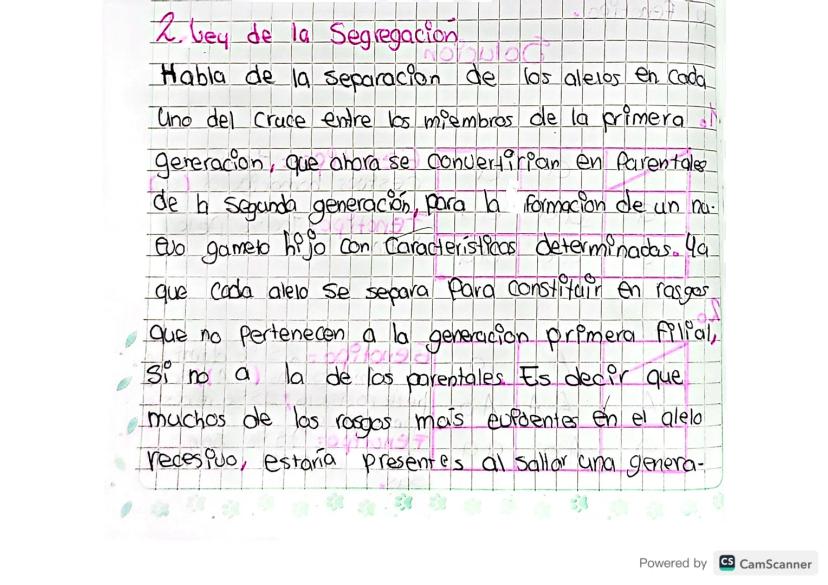 2. Ley de la Segregación
Habla de la separación de los alelos en cada
uno del cruce entre los miembros de la primera
gereracion, que ahora se convertirian en Parentales
de la segunda generación, para la formacion de un nu-
evo gameto hijo con Caracteristicas determinadas. Ya
que cada alelo se separa Para constituir en rasgos
que no Pertenecen a la generacion primera filial,
Si no a la de los parentales. Es decir que
muchos de los rasgos más evidentes en el alelo
recesivo, estaría presentes al saltar una genera-
Powered by CS CamScanner